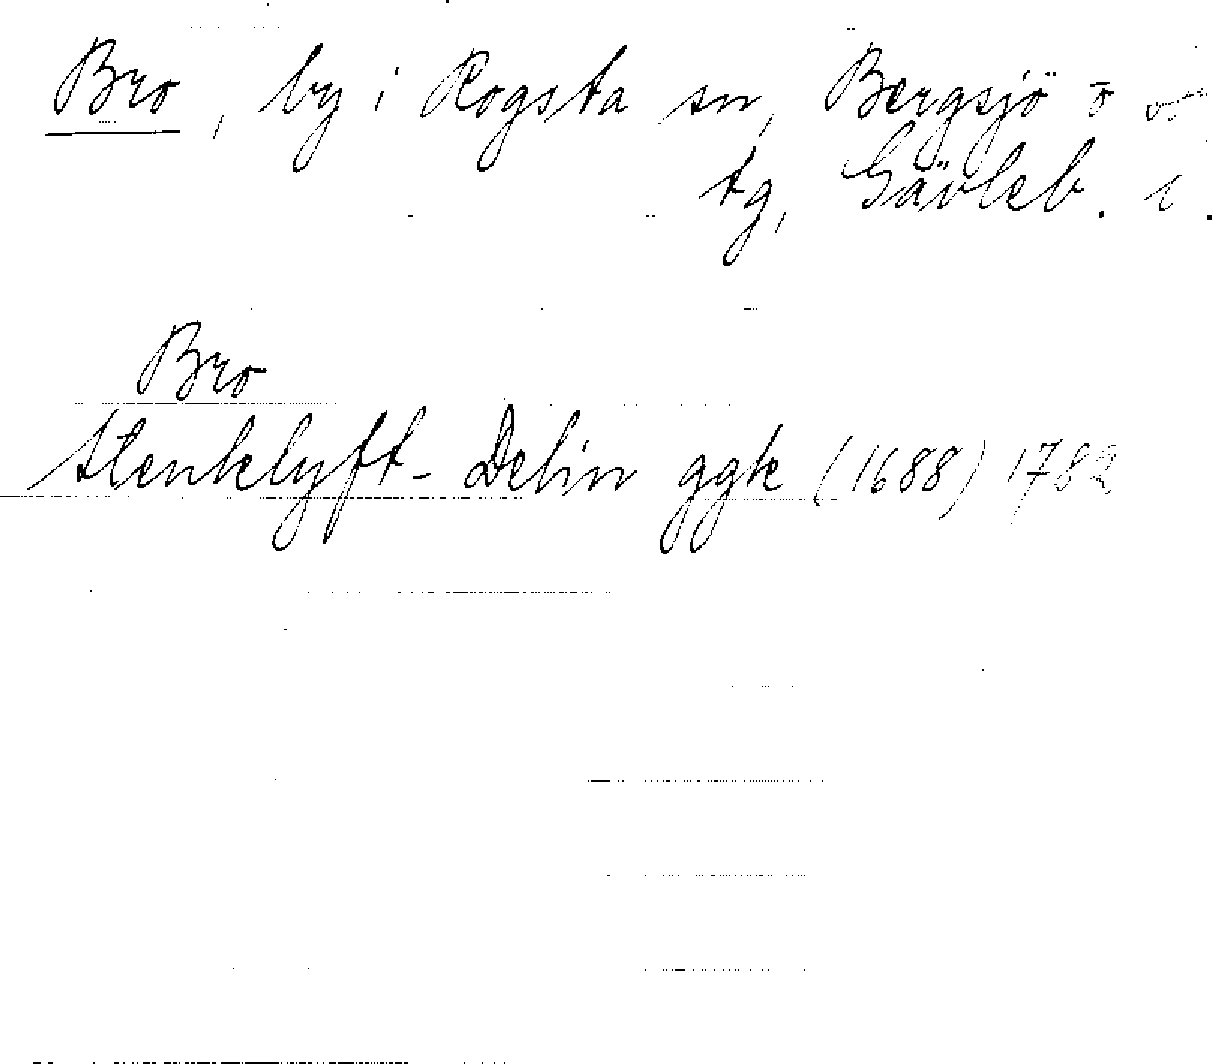 Bro, by i Rogsta sn, Bergsjö o
tg, Gävleb. l.
Bro
Stenklyft- Delin ggk (1688) 1782